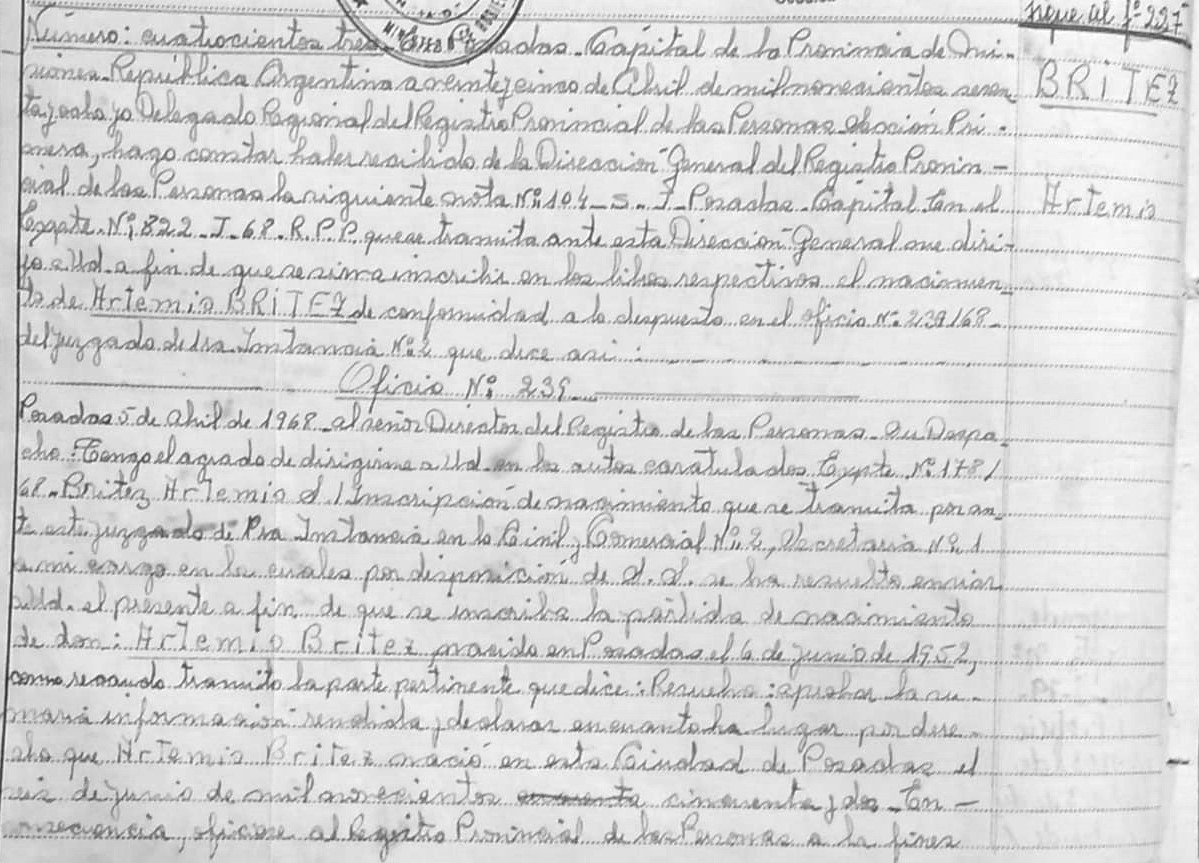 sigue al fº 227
Número: cuatrocientos tres Posadas. Capital de la Provincia de Mi-
siones República Argentina a veinte y cinco de Abril de mil novecientos sesen
ta y ocho, yo Delegado Regional del Registro Provincial de las Personas Sección Pri-
mera, hago constar haber recibido de la Dirección General del Registro Provin-
cial de las Personas la siguiente nota Nº 104-S. I- Posadas-Capital En el
Expte. Nº 822-I-68-R.P.P. que se tramita ante esta Dirección General me diri-
jo a Ud. a fin de que se sirva inscribir en los libros respectivos el nacimien-
to de Artemio BRITEZ de conformidad a lo dispuesto en el oficio Nº 239168-
del juzgado de 1ra Instancia Nº 2 que dice así:
BRITEZ
Artemio
Oficio Nº 239
Posadas 5 de abril de 1968- al señor Director del Registro de las Personas- Su Despa-
cho: Tengo el agrado de dirigirme a Ud. en los autos caratulados Expte. Nº 1781
68- Britez Artemio S/Inscripción de nacimiento que se tramita por an-
te este juzgado de Pra Instancia en lo Civil y Comercial Nº 2, Secretaria Nº 1
a mi cargo en los cuales por disposición de S.S. se ha resuelto enviar
a Ud. el presente a fin de que se inscriba la partida de nacimiento
de don: Artemio Britez nacido en Posadas el 6 de junio de 1952,
como recaudo transcrito la parte pertinente que dice: Resuelvo: aprobar la su-
maria información rendida y declarar en cuanto ha lugar por dere-
cho que Artemio Britez nació en esta Ciudad de Posadas el
seis de junio de mil novecientos cincuenta y dos- En-
consecuencia, ofíciese al Registro Provincial de las Personas a los fines